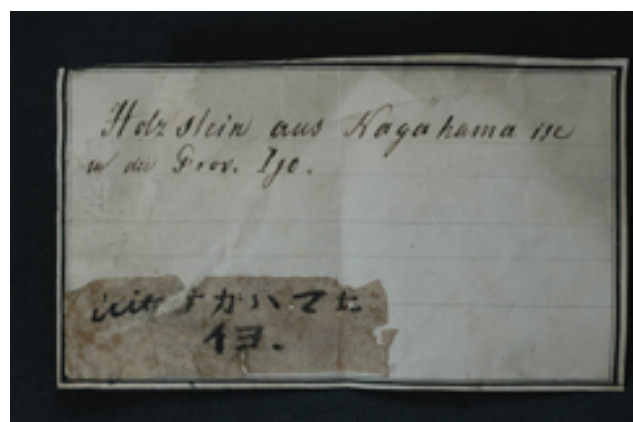 Holzstein aus Nagahama
in der Prov. Iyo.
ナガハマ
イヨ.